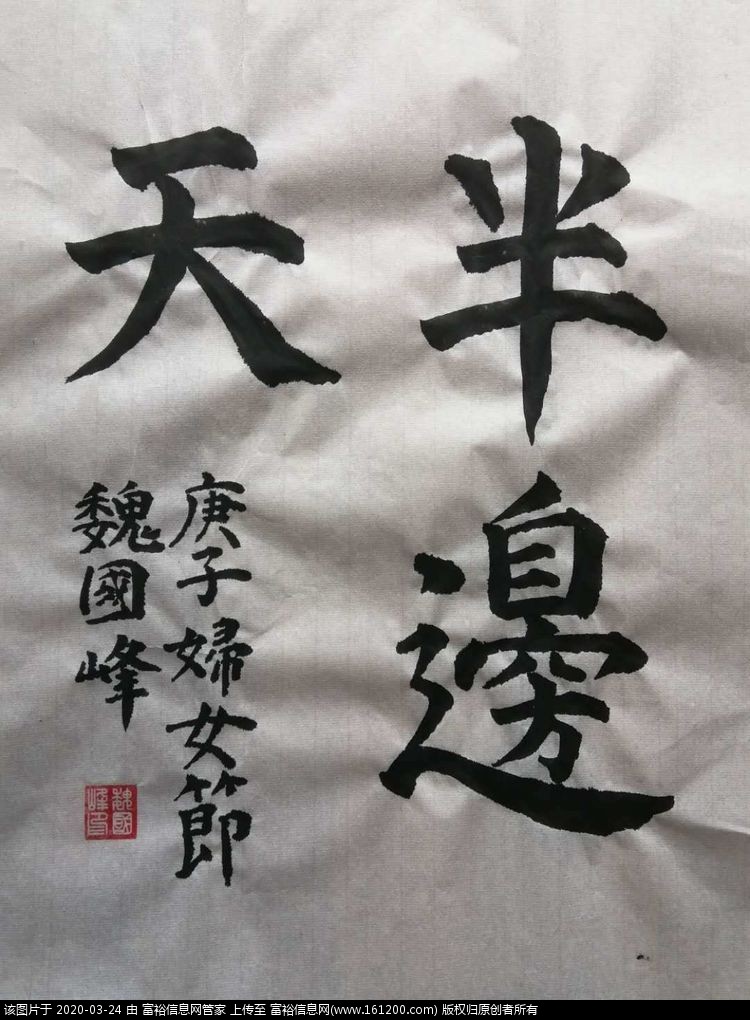 半邊
天
庚子婦女節
魏國峰
魏國
峰印
该图片于 2020-03-24 由 富裕信息网管家 上传至 富裕信息网(www.161200.com) 版权归原创者所有